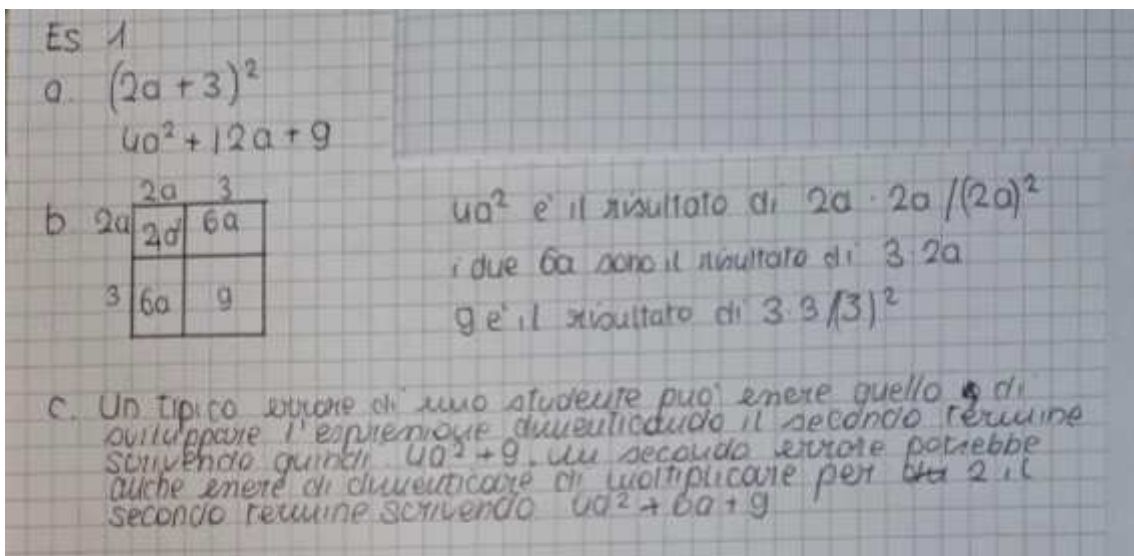 ES 1
a. (2a + 3)²
4a² + 12a + 9
2a 3
b 2a 2a² 6a
3 6a 9
4a² è il risultato di 2a · 2a /(2a)²
i due 6a sono il risultato di 3·2a
9 è il risultato di 3·3/(3)²
c. Un tipico errore di uno studente può essere quello di
sviluppare l'espressione dimenticando il secondo termine
scrivendo quindi 4a² + 9. Un secondo errore potrebbe
anche essere di dimenticare di moltiplicare per 2 il
secondo termine scrivendo 4a² + 6a + 9